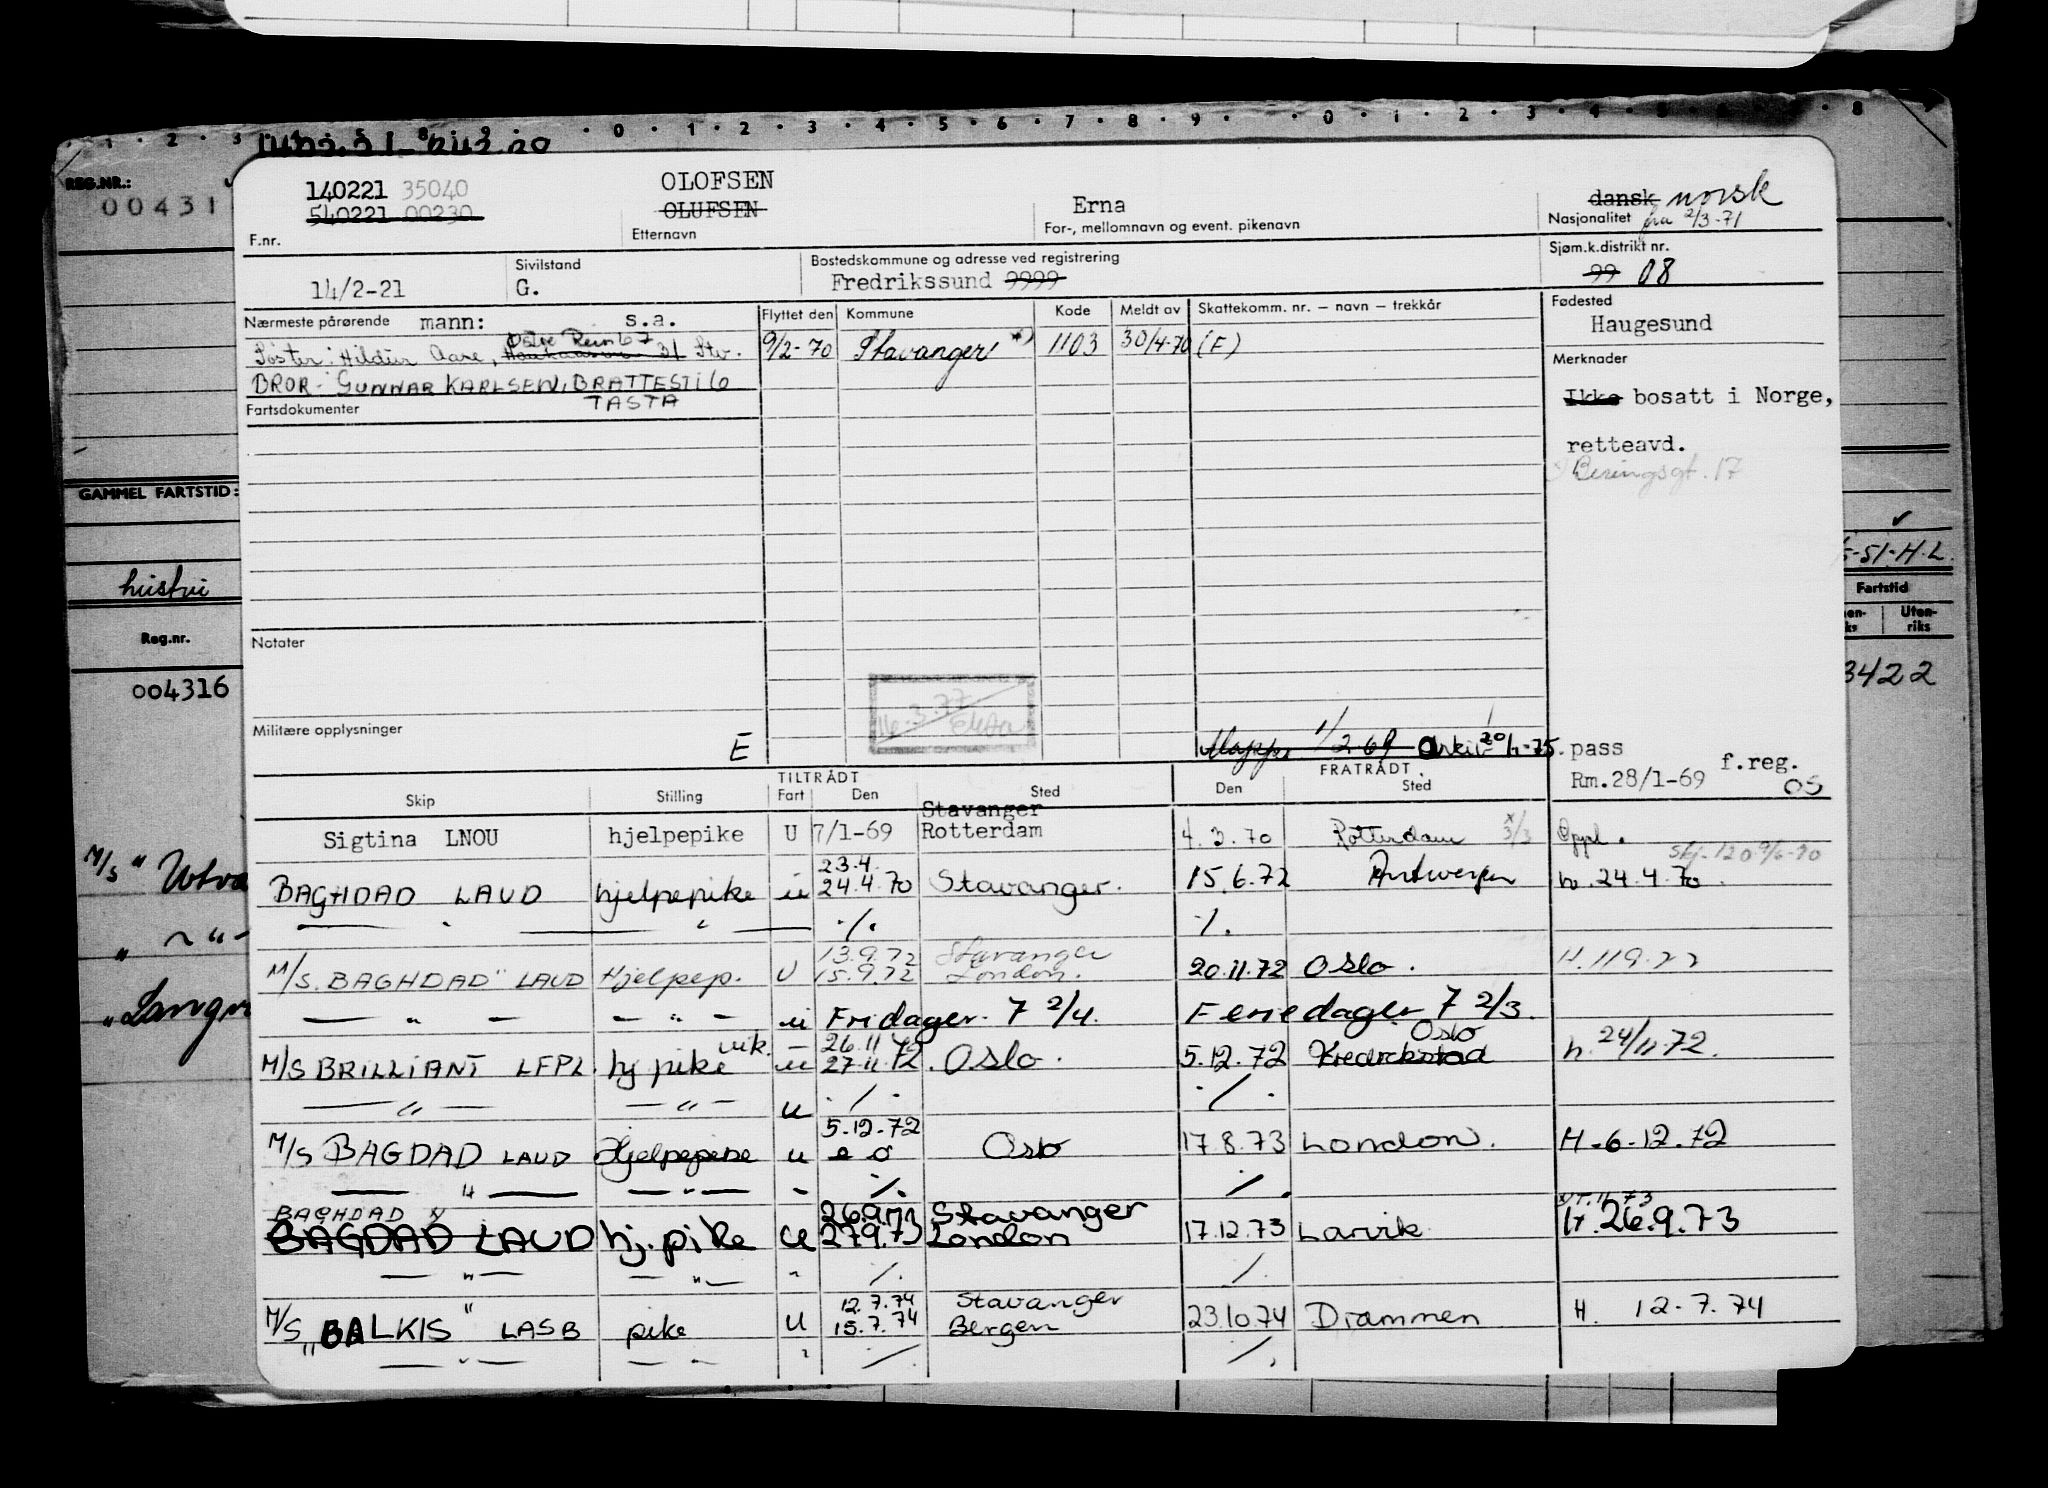 REG.NR.:
00431
140221 35040
540221 00230
F.nr.
OLOFSEN
OLUFSEN
Etternavn
Erna
For-, mellomnavn og event. pikenavn
dansk norsk
Nasjonalitet fra 2/3-71
14/2-21
Sivilstand
G.
Bostedskommune og adresse ved registrering
Fredrikssund 9999
Sjøm.k.distrikt nr.
99 08
Nærmeste pårørende mann: s.a.
Søster: Aase, 31 Stv.
BROR: GUNNAR KARLSEN, BRATTESTI 6
TASTA
Flyttet den Kommune Kode Meldt av Skattekomm. nr. – navn – trekkår
9/2-70 Stavanger *) 1103 30/4-70 (F)
Fødested
Haugesund
Merknader
Ikke bosatt i Norge,
retteavd.
Beringsgt. 17
Fartsdokumenter
GAMMEL FARTSTID:
hustru
Reg.nr.
004316
5-51-H.L.
Fartstid
Uten-
riks
3422
Notater
Militære opplysninger
E
16.3.77
Mappe 1/2 69 Arkiv 20/1-75. pass
Rm.28/1-69 f.reg.
OS
M/S "Utva
"Langv
TILTRÅDT FRATRÅDT
Skip Stilling Fart Den Sted Den Sted
Stavanger
Sigtina LNOU hjelpepike U 7/1-69 Rotterdam 4.3.70 Rotterdam x 3/3 Oppl.
23.4.
BAGHDAD LAUD hjelpepike u 24.4.70 Stavanger. 15.6.72 Antwerpen h. 24.4.70.
— " — " — ./. ./.
13.9.72 Stavanger
M/S. BAGHDAD" LAUD Hjelpep. U 15.9.72 London. 20.11.72 Oslo. H. 119.72
— " — — " — u Fridager. 7 2/4. Feriedager 7 2/3.
vik. — 26.11.72 Oslo
M/S BRILLIANT LFPL. hj pike u 27.11.72. Oslo. 5.12.72 Fredrikstad h. 24/11 72.
— " — — " — u ./. ./.
5.12.72
M/S BAGDAD LAUD Hjelpepike u Oslo 17.8.73 London. H-6-12.72
— " — — " — - ./. ./.
BAGHDAD x) 26.9.73 Stavanger
BAGDAD LAUD hj.pike U 27.9.73 London 17.12.73 Larvik H.26.9.73
— " — — " — " ./. ./.
12.7.74 Stavanger
M/S "BALKIS" LASB pike U 15.7.74 Bergen 23.10.74 Drammen H. 12-7.74
— " — — " — " ./. ./.